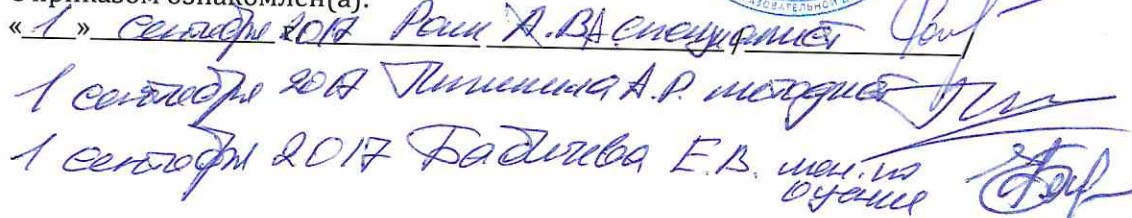 приказом ознакомлен(а):
«1» сентября 2017 Рош А.В. специалист
1 сентября 2017 А.Р. методист
1 сентября 2017 Бабичева Е.В. мен. по
оценке